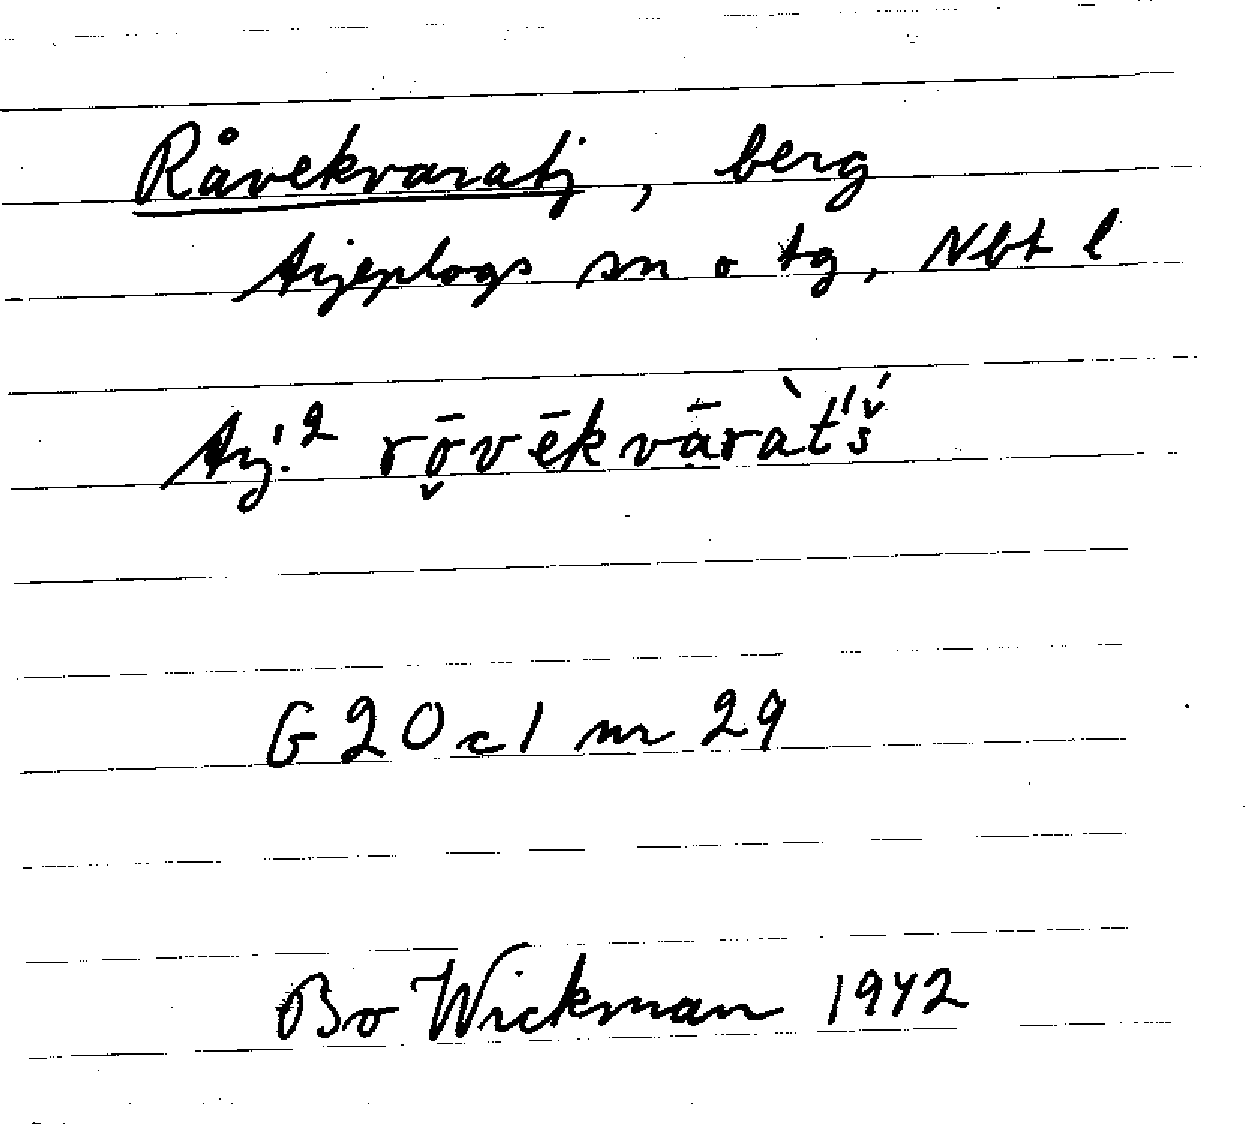 Råvekvaratj, berg
Arjeplogs sn o tg, Nbt l
Arj.² rō̬vēkvạ̄ràt́š́
G 20 c 1 nr 29
Bo Wickman 1942